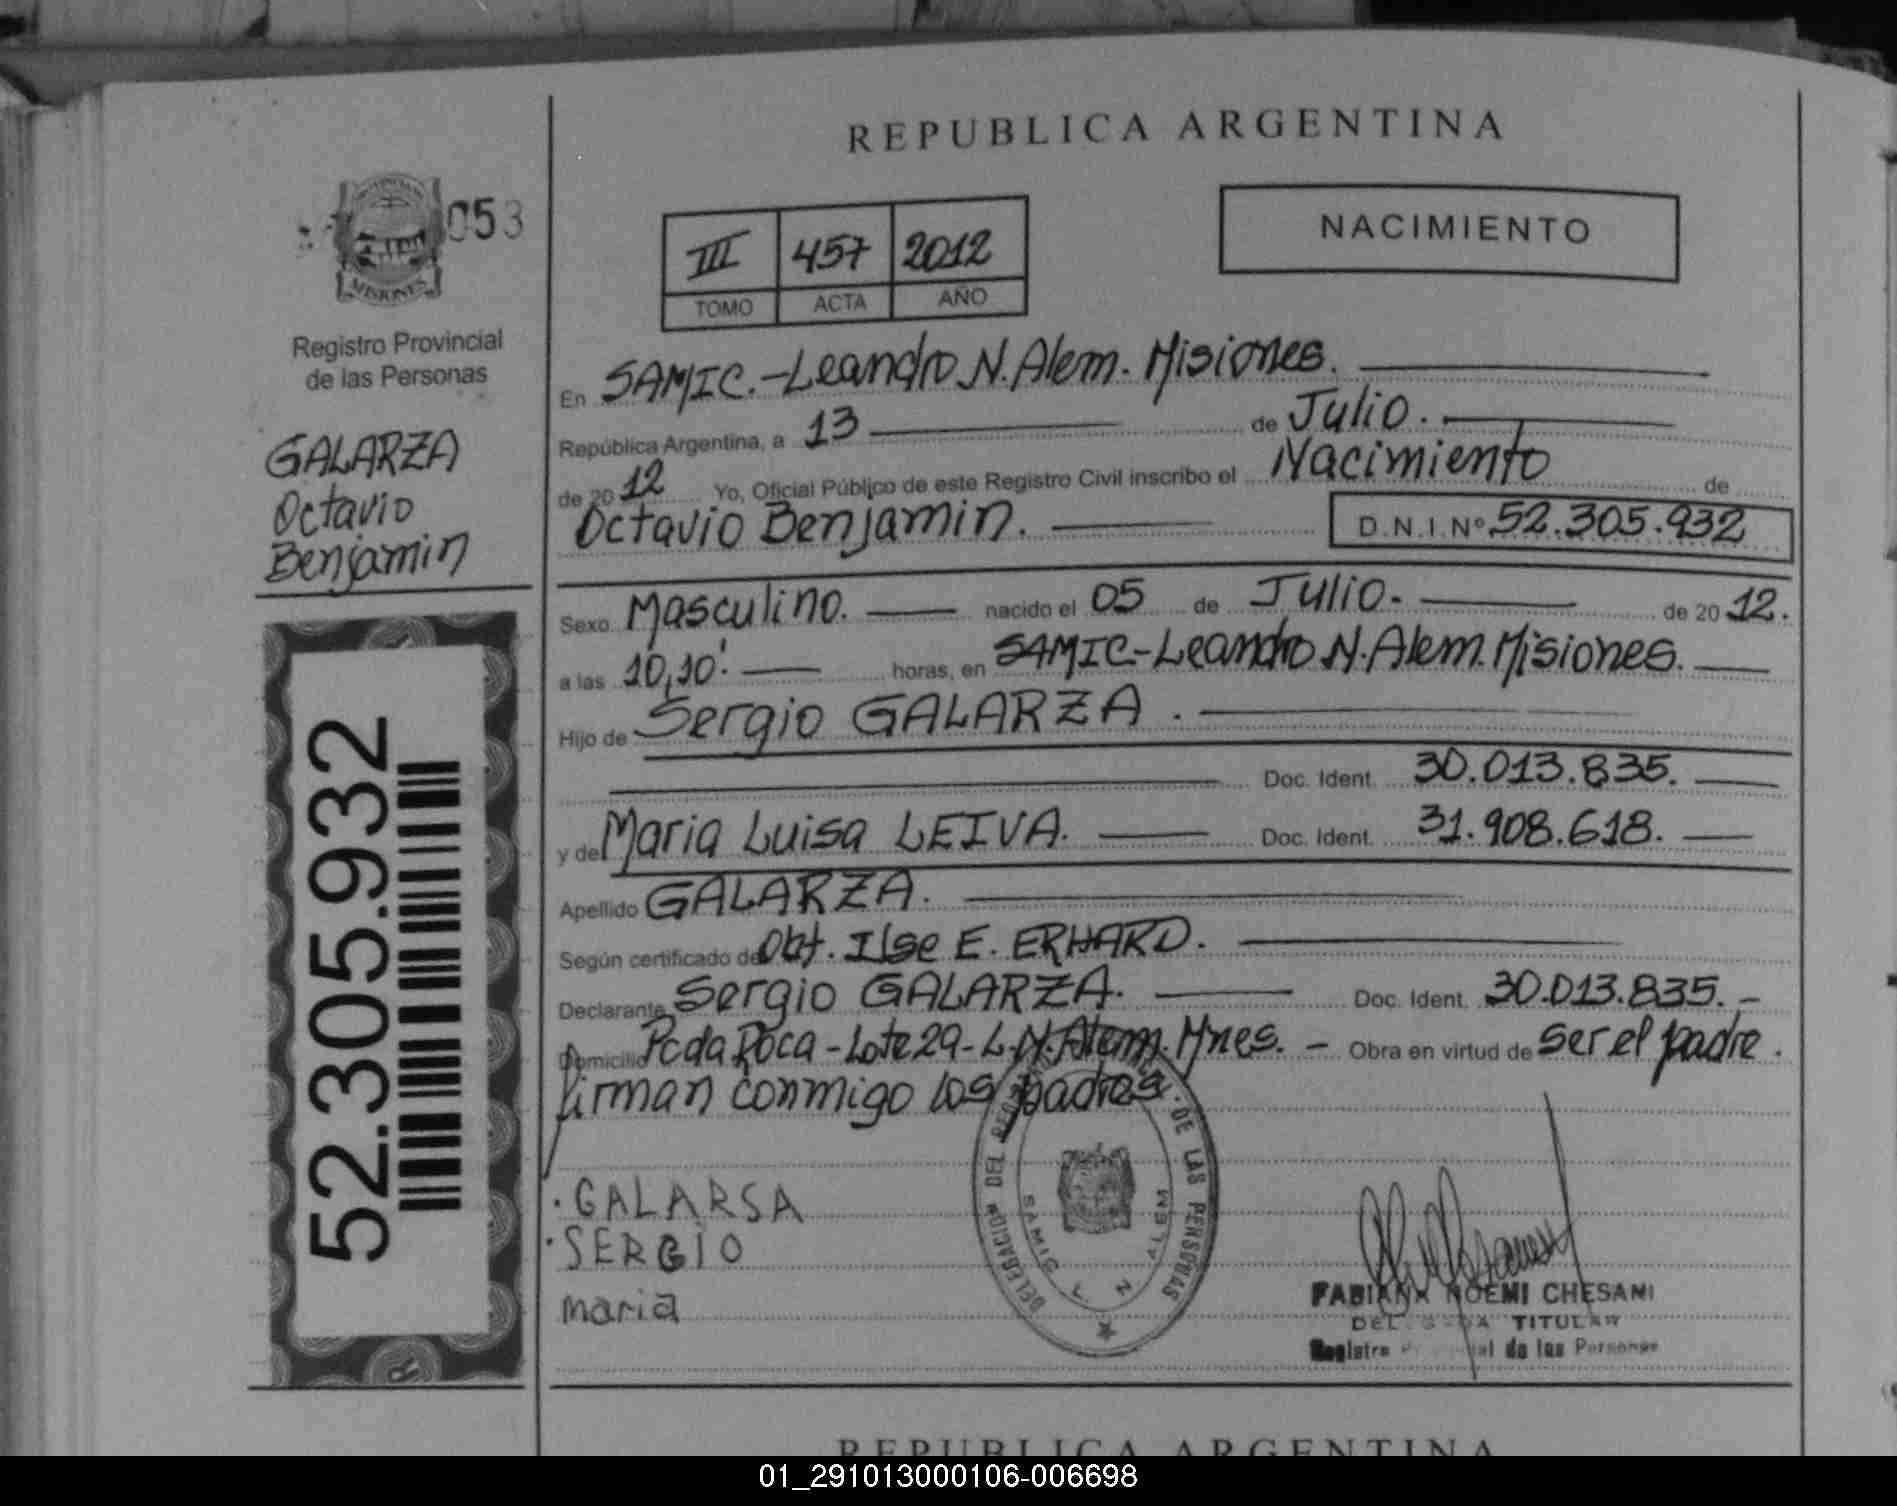 REPUBLICA ARGENTINA
053
PROVINCIA DE
MISIONES
Registro Provincial
de las Personas
GALARZA
Octavio
Benjamin
52.305.932
NACIMIENTO
III 457 2012
TOMO ACTA AÑO
En SAMIC.-Leandro N. Alem. Misiones.
República Argentina, a 13 de Julio.
de 2012 Yo, Oficial Público de este Registro Civil inscribo el Nacimiento de
Octavio Benjamin. D.N.I. Nº 52.305.932
Sexo Masculino. nacido el 05 de Julio. de 2012.
a las 10,10' horas, en SAMIC-Leandro N. Alem. Misiones.
Hijo de Sergio GALARZA.
Doc. Ident. 30.013.835.
y de Maria Luisa LEIVA. Doc. Ident. 31.908.618.
Apellido GALARZA.
Según certificado de Obt. Ilse E. ERHARD.
Declarante Sergio GALARZA. Doc. Ident. 30.013.835.-
Domicilio Pcda Roca-Lote 29-L.N. Alem. Mnes. - Obra en virtud de ser el padre.
firman conmigo los padres
DELEGACION DEL DE LAS PERSONAS
SAMIC L. N. ALEM
GALARSA
SERGIO
maria
FABIANA NOEMI CHESANI
TITULAR
Registro de las Personas
REPUBLICA ARGENTINA
01_291013000106-006698